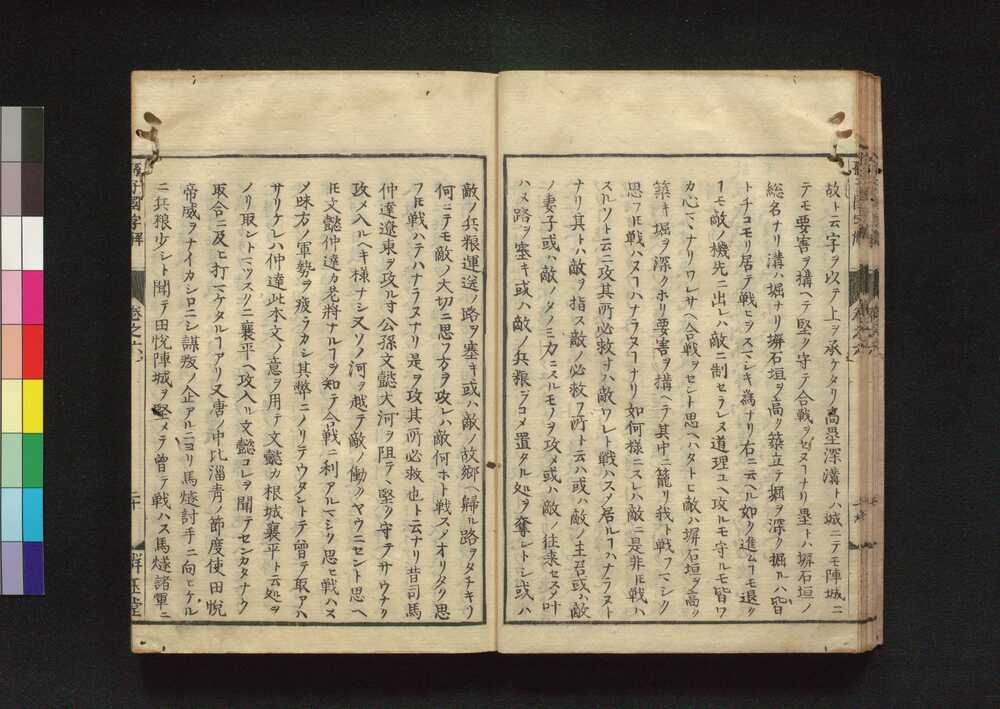 故ト云字ヲ以テ上ヲ承ケタリ高塁深溝トハ城ニテモ陣城ニ
テモ要害ヲ構ヘテ堅ク守テ合戦ヲセヌヿナリ塁トハ塀石垣ノ
総名ナリ溝ハ堀ナリ塀石垣ヲ高ク築立テ堀ヲ深ク掘ルハ皆
トチコモリ居テ戦ヒヲスマシキ為ナリ右ニ云ヘル如ク進ムヿモ退ク
ヿモ敵ノ機先ニ出レハ敵ニ制セラレヌ道理ユヘ攻ルモ守ルモ皆ワ
カ心マヽナリワレサヘ合戦ヲセシト思ヘハタトヒ敵ハ塀石垣ヲ高ク
築キ堀ヲ深クホリ要害ヲ構ヘテ其中ニ籠リ我ト戦フマシク
思フ𪜈戦ハヌヿハナラヌヿナリ如何様ニスレハ敵ニ是非𪜈戦ハ
スルソト云ニ攻其所必救寸ハ敵ワレト戦ハスノ居ルヿハナラヌト
ナリ其トハ敵ヲ指ス敵ノ必救フ所ト云ハ或ハ敵ノ主君或ハ敵
ノ妻子或ハ敵ノタノミ力ニスルモノヲ攻メ或ハ敵ノ往来セスノ叶
ハヌ路ヲ塞キ或ハ敵ノ兵粮ヲコメ置タル処ヲ奪レトシ或ハ
敵ノ兵粮運送ノ路ヲ塞キ或ハ敵ノ故郷ヘ歸ル路ヲタチキリ
何ニテモ敵ノ大切ニ思フ方ヲ攻レハ敵何ホト戦スノオリタク思
フ𪜈戦ハテハナラヌナリ是ヲ攻其所必救也ト云ナリ昔司馬
仲達遼東ヲ攻ル寸公孫文懿大河ヲ阻テヽ堅ク守テサウナク
攻メ入ルヘキ様ナシ又ソノ河ヲ越テ敵ノ働クヤウニセント思ヘ
𪜈文懿仲達カ老将ナルヿヲ知テ合戦ニ利アルマシク思ヒ戦ハス
ノ味方ノ軍勢ヲ疲ラカシ其弊ニノリテウタントテ曽テ取アハ
サリケレハ仲達此本文ノ意ヲ用テ文懿カ根城襄平ト云処ヲ
ノリ取ントマツスクニ襄平ヘ攻入ル文懿コレヲ聞テセンカタナク
取合ニ及ヒ打マケタルヿアリ又唐ノ中比淄青ノ節度使田悦
帝威ヲナイカシロニシ謀叛ノ企アルニヨリ馬燧討手ニ向ヒケル
ニ兵粮少シト聞テ田悦陣城ヲ堅メテ曽テ戦ハス馬燧諸軍ニ
孫子國字解
巻之六
二十
群玉堂